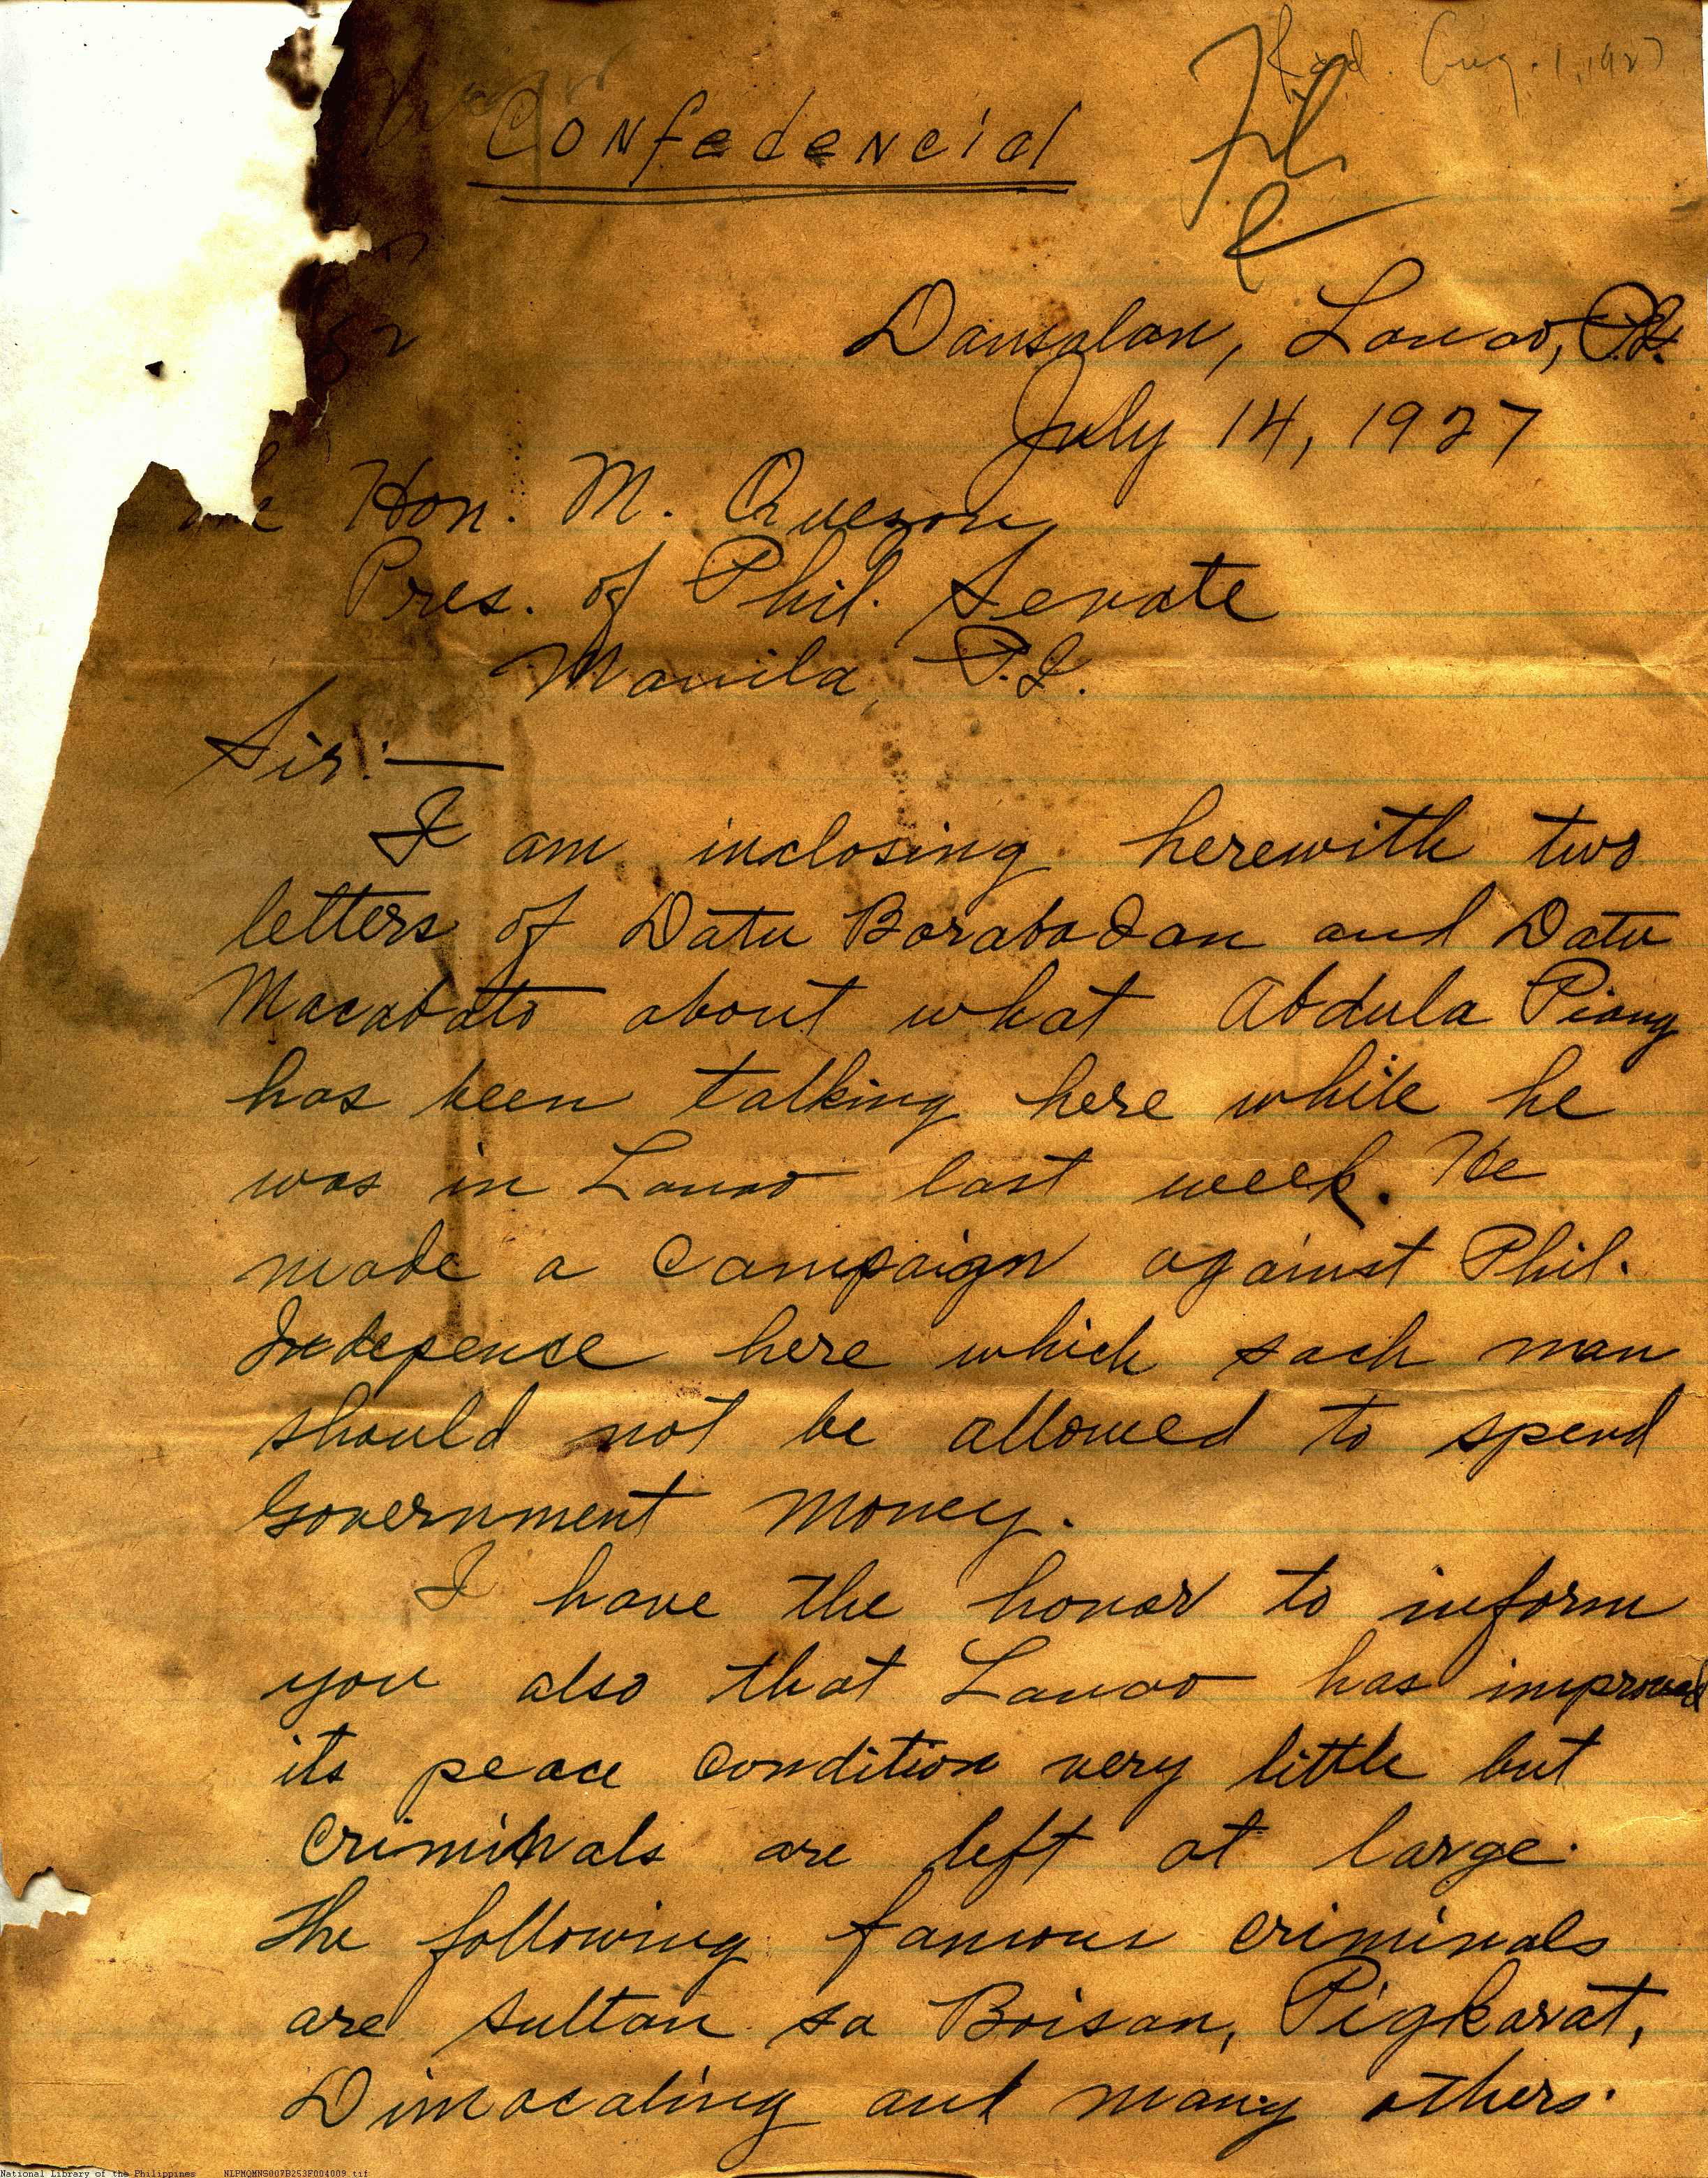 Confedencial
Aug. 1, 1927
Dansalan, Lanao, P.I.
July 14, 1927
Hon. M. Quezon
Pres. of Phil. Senate
Manila, P.I.
Sir:—
I am inclosing herewith two
letters of Datu Borabadan and Datu
Macabato about what Abdula Piang
has been talking here while he
was in Lanao last week. He
made a campaign against Phil.
Indepence here which sach man
should not be allowed to spend
Government money.
I have the honor to inform
you also that Lanao has improved
its peace condition very little but
criminals are left at large.
The following famour criminals
are sultan sa Boisan, Pigkarat,
Dimacaling and many others.
National Library of the Philippines NLPMQMNS007B253F004009.tif